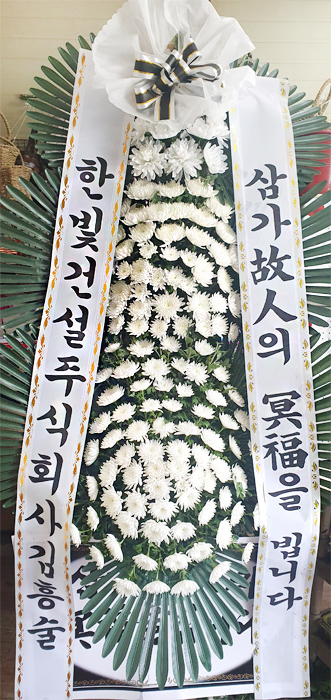 삼가故人의 冥福을 빕니다
한빛건설주식회사김흥술